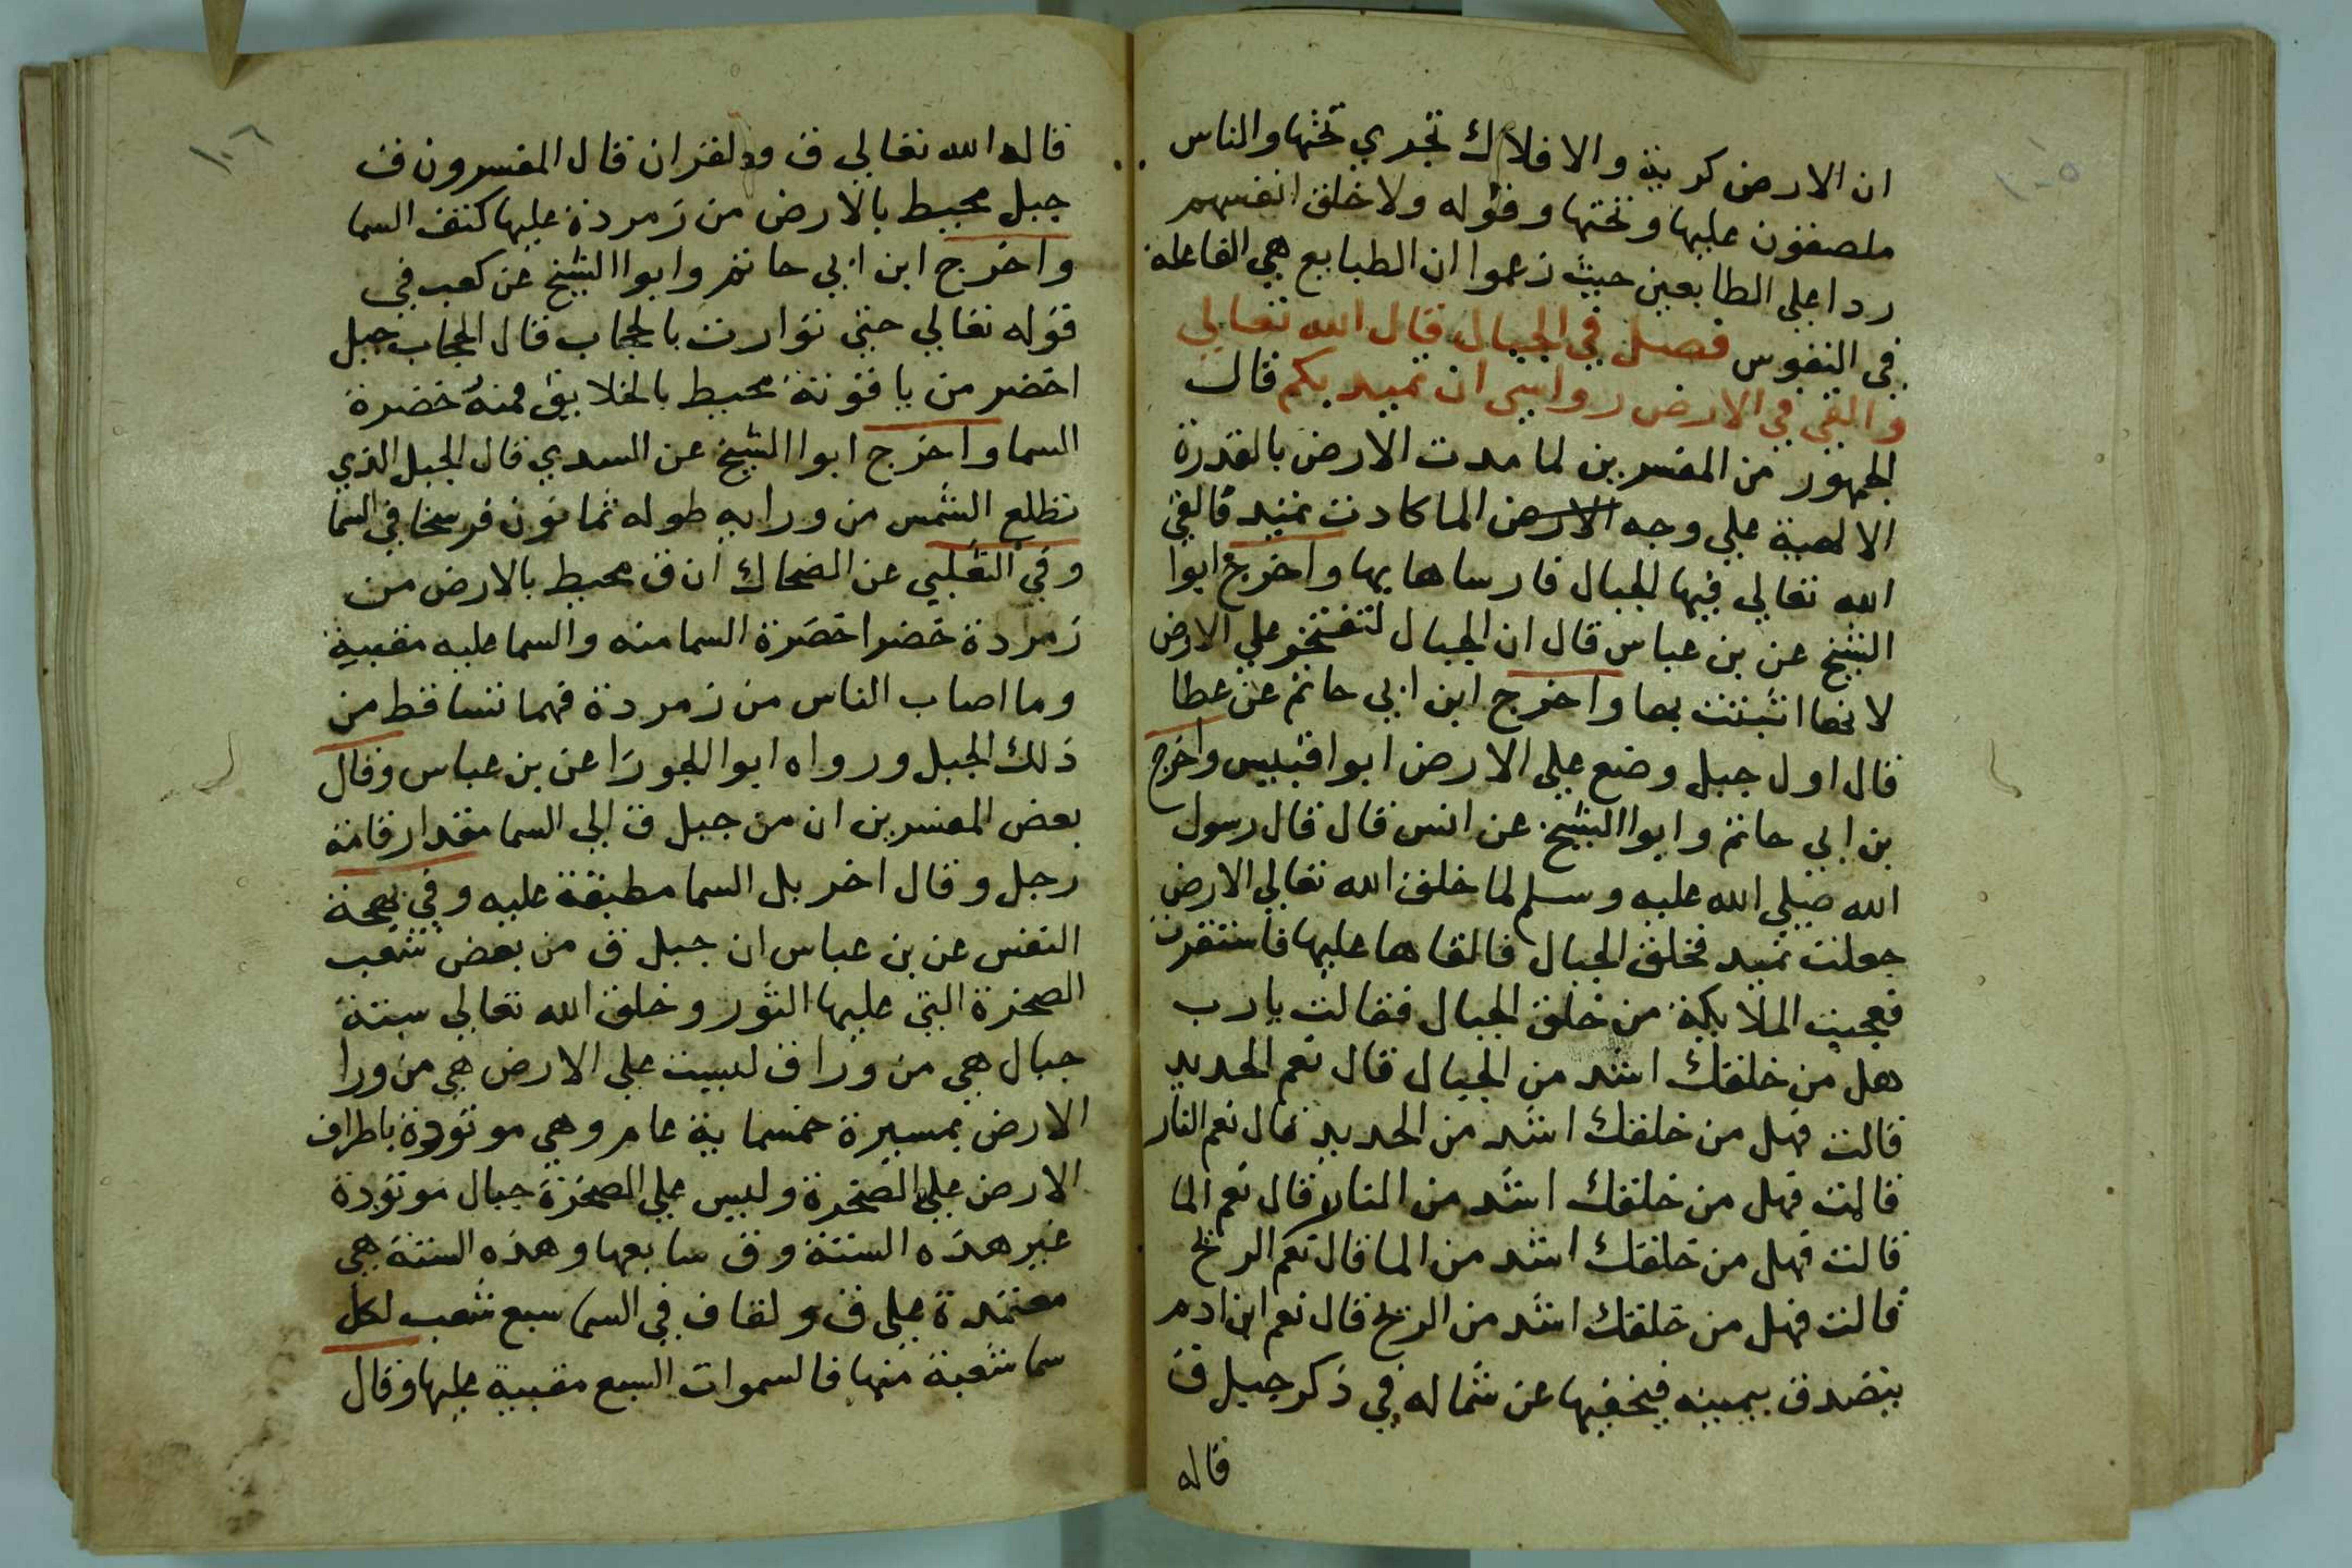 ١٠٥
ان الارض كرية والافلاك تجري تحتها والناس
ملصقون عليها وتحتها وقوله ولا خلق انفسهم
ردا علي الطابعين حيث زعموا ان الطبايع هي الفاعلة
في النفوس فصل في الجبال قال الله تعالي
والقي في الارض رواسي ان تميد بكم قال
الجمهور من المفسرين لما مدت الارض بالقدرة
الالهية علي وجه الارض الما كادت تميد فالقي
الله تعالي فيها الجبال فارساها بها واخرج ابوا
الشيخ عن بن عباس قال ان الجبال لتفتخر علي الارض
لانها اثبتت بها واخرج ابن ابي حاتم عن عطا
قال اول جبل وضع علي الارض ابوا قبيس واخرج
بن ابي حاتم وابوا الشيخ عن انس قال قال رسول
الله صلي الله عليه وسلم لما خلق الله تعالي الارض
جعلت تميد فخلق الجبال فالقاها عليها فاستقرت
فعجبت الملايكة من خلق الجبال فقالت يارب
هل من خلقك اشد من الجبال قال نعم الحديد
قالت فهل من خلقك اشد من الحديد قال نعم النار
قالت فهل من خلقك اشد من النار قال نعم الما
قالت فهل من خلقك اشد من الما قال نعم الريح
قالت فهل من خلقك اشد من الريح قال نعم ابن ادم
يتصدق بيمينه فيخفيها عن شماله في ذكر جبل ق
قاله
١٠٦
قاله الله تعالي ق والقران قال المفسرون ق
جبل محيط بالارض من زمردة عليها كنف السما
واخرج ابن ابي حاتم وابوا الشيخ عن كعب في
قوله تعالي حتي توارت بالحجاب قال الحجاب جبل
اخضر من ياقوتة محيط بالخلايق فمنه خضرة
السما واخرج ابوا الشيخ عن السدي قال الجبل الذي
تطلع الشمس من ورايه طوله ثمانون فرسخا في السما
وفي الثعلبي عن الضحاك ان ق محيط بالارض من
زمردة خضرا خضرة السما منه والسما عليه مقببة
وما اصاب الناس من زمردة فهما تساقط من
ذلك الجبل ورواه ابوا الجوزا عن بن عباس وقال
بعض المفسرين ان من جبل ق الي السما مقدار قامة
رجل وقال اخر بل السما مطبقة عليه وفي بهجة
النفس عن بن عباس ان جبل ق من بعض شعب
الصخرة التي عليها الثور وخلق الله تعالي ستة
جبال هي من ورا ق ليست علي الارض هي من ورا
الارض بمسيرة خمسماية عام وهي موتودة باطراف
الارض علي الصخرة وليس علي الصخرة جبال موتودة
غير هذه الستة وق سابعها وهذه الستة هي
معتمدة علي ق ولقاف في السما سبع شعب لكل
سما شعبة منها فالسموات السبع مقببة عليها وقال